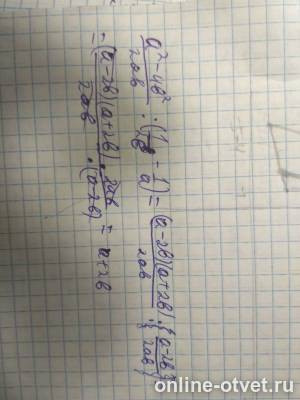 a²-4b²/2ab : (1/2b - 1/a) = (a-2b)(a+2b)/2ab : {a-2b/2ab}
= (a-2b)(a+2b) · 2ab/2ab · (a-2b) = a+2b
online-otvet.ru